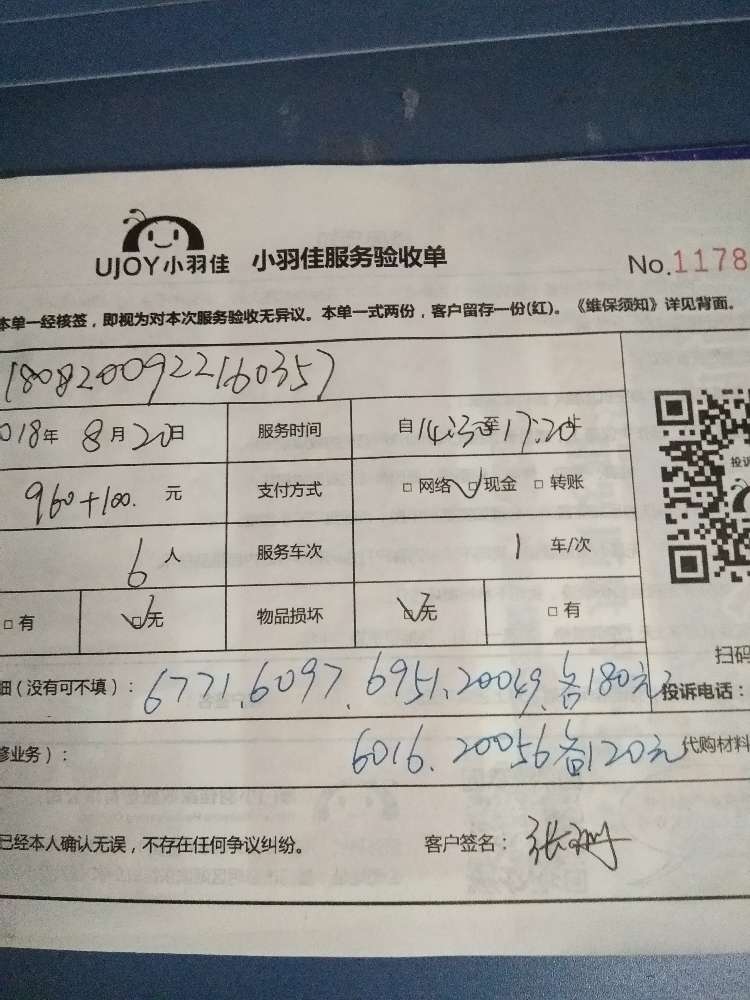 UJOY小羽佳 小羽佳服务验收单 No.1178
本单一经核签，即视为对本次服务验收无异议。本单一式两份，客户留存一份(红)。《维保须知》详见背面。
1808200922160357
018年 8月20日 服务时间 自14:30至17:20止
960+100. 元 支付方式 □网络 □现金 □转账
6人 服务车次 1 车/次
□有 □无 物品损坏 □无 □有
扫码
细（没有可不填）： 6771.6097.6951.20049.各180元 投诉电话：
修业务）： 6016.20056各120元 代购材料
已经本人确认无误，不存在任何争议纠纷。 客户签名： 张